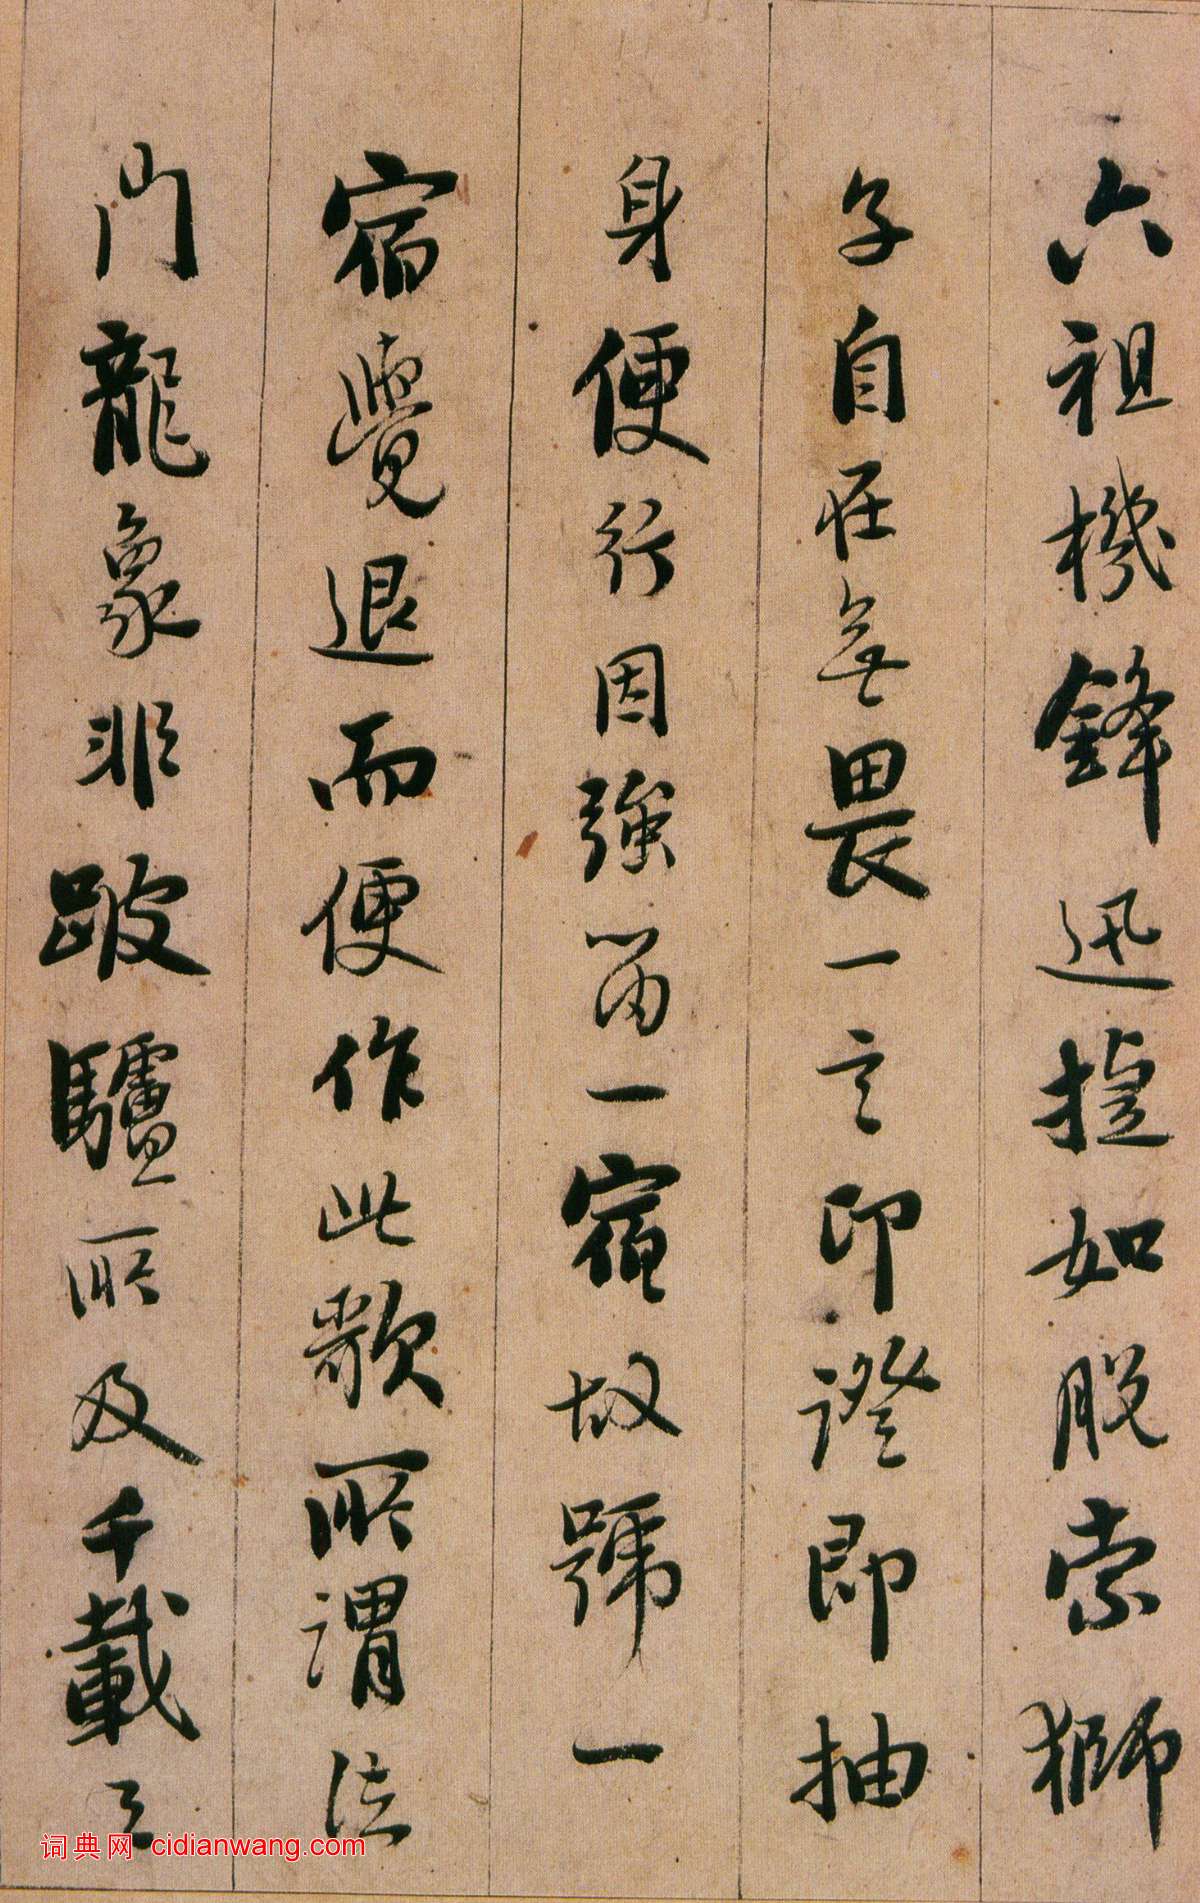 六祖機鋒迅捷如脫索獅
子自在無畏一言印證即抽
身便行因強留一宿故號一
宿覺退而便作此歌所謂法
門龍象非跛驢所及千載之
词典网 cidianwang.com